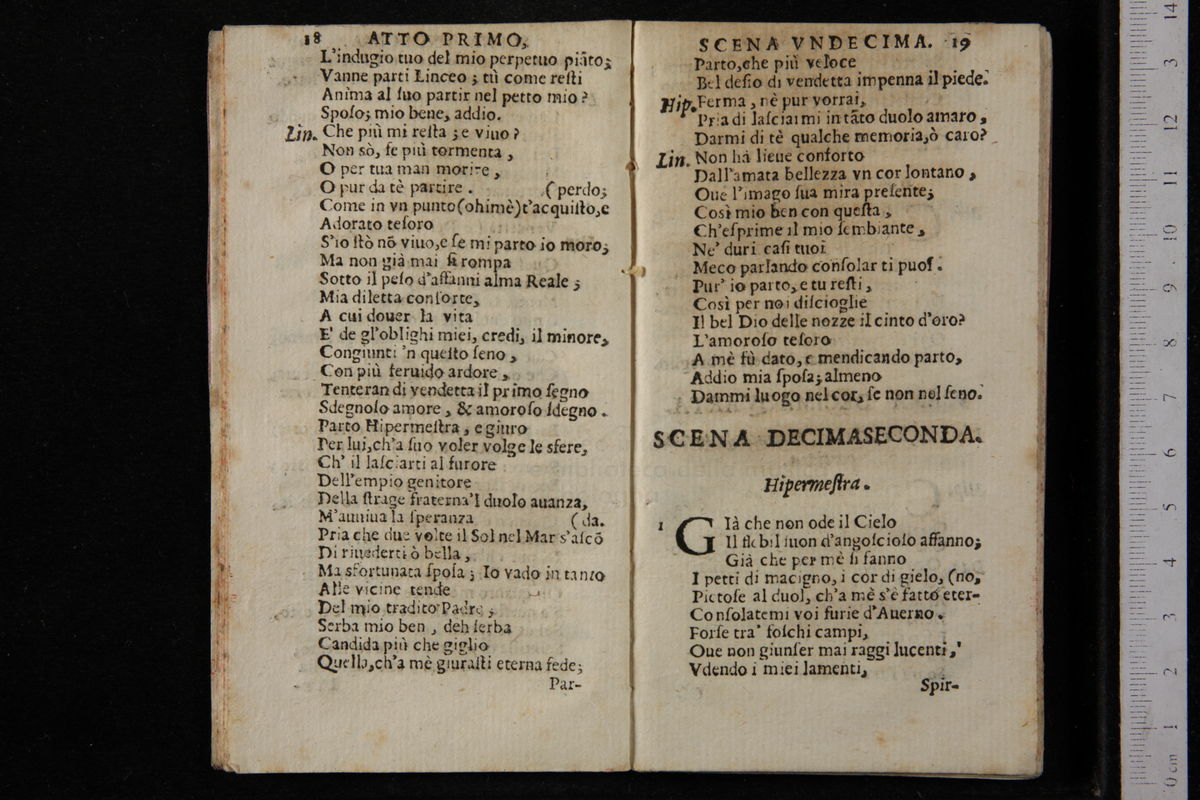 18 ATTO PRIMO,
L'indugio tuo del mio perpetuo piãto;
Vanne parti Linceo; tù come resti
Anima al suo partir nel petto mio?
Sposo; mio bene, addio.
Lin. Che più mi resta; e viuo?
Non sò, se più tormenta,
O per tua man morire,
O pur da tè partire. (perdo;
Come in vn punto (ohimè) t'acquisto, e
Adorato tesoro
S'io stò nõ viuo, e se mi parto io moro;
Ma non già mai si rompa
Sotto il peso d'affanni alma Reale;
Mia diletta consorte,
A cui douer la vita
E' de gl'oblighi miei, credi, il minore,
Congiunti 'n questo seno,
Con più feruido ardore,
Tenteran di vendetta il primo segno
Sdegnoso amore, & amoroso sdegno.
Parto Hipermestra, e giuro
Per lui, ch'a suo voler volge le sfere,
Ch' il lasciarti al furore
Dell'empio genitore
Della strage fraterna'l duolo auanza,
M'auuiua la speranza (da.
Pria che due volte il Sol nel Mar s'ascõ
Di riuederti ò bella,
Ma sfortunata sposa; Io vado in tanto
Alle vicine tende
Del mio tradito Padre;
Serba mio ben, deh serba
Candida più che giglio
Quella, ch'a mè giurasti eterna fede;
Par-
SCENA VNDECIMA. 19
Parto, che più veloce
Bel desio di vendetta impenna il piede.
Hip. Ferma, nè pur vorrai,
Pria di lasciarmi in tãto duolo amaro,
Darmi di tè qualche memoria, ò caro?
Lin. Non hà lieue conforto
Dall'amata bellezza vn cor lontano,
Oue l'imago sua mira presente;
Così mio ben con questa,
Ch'esprime il mio sembiante,
Ne' duri casi tuoi
Meco parlando consolar ti puoi.
Pur' io parto, e tu resti,
Così per noi discioglie
Il bel Dio delle nozze il cinto d'oro?
L'amoroso tesoro
A mè fù dato, e mendicando parto,
Addio mia sposa; almeno
Dammi luogo nel cor, se non nel seno.
SCENA DECIMASECONDA.
Hipermestra.
1 Già che non ode il Cielo
Il flebil suon d'angoscioso affanno;
Già che per mè si fanno
I petti di macigno, i cor di gielo, (no,
Pietose al duol, ch'a mè s'è fatto eter-
Consolatemi voi furie d'Auerno.
Forse tra' foschi campi,
Oue non giunser mai raggi lucenti,
Vdendo i miei lamenti,
Spir-